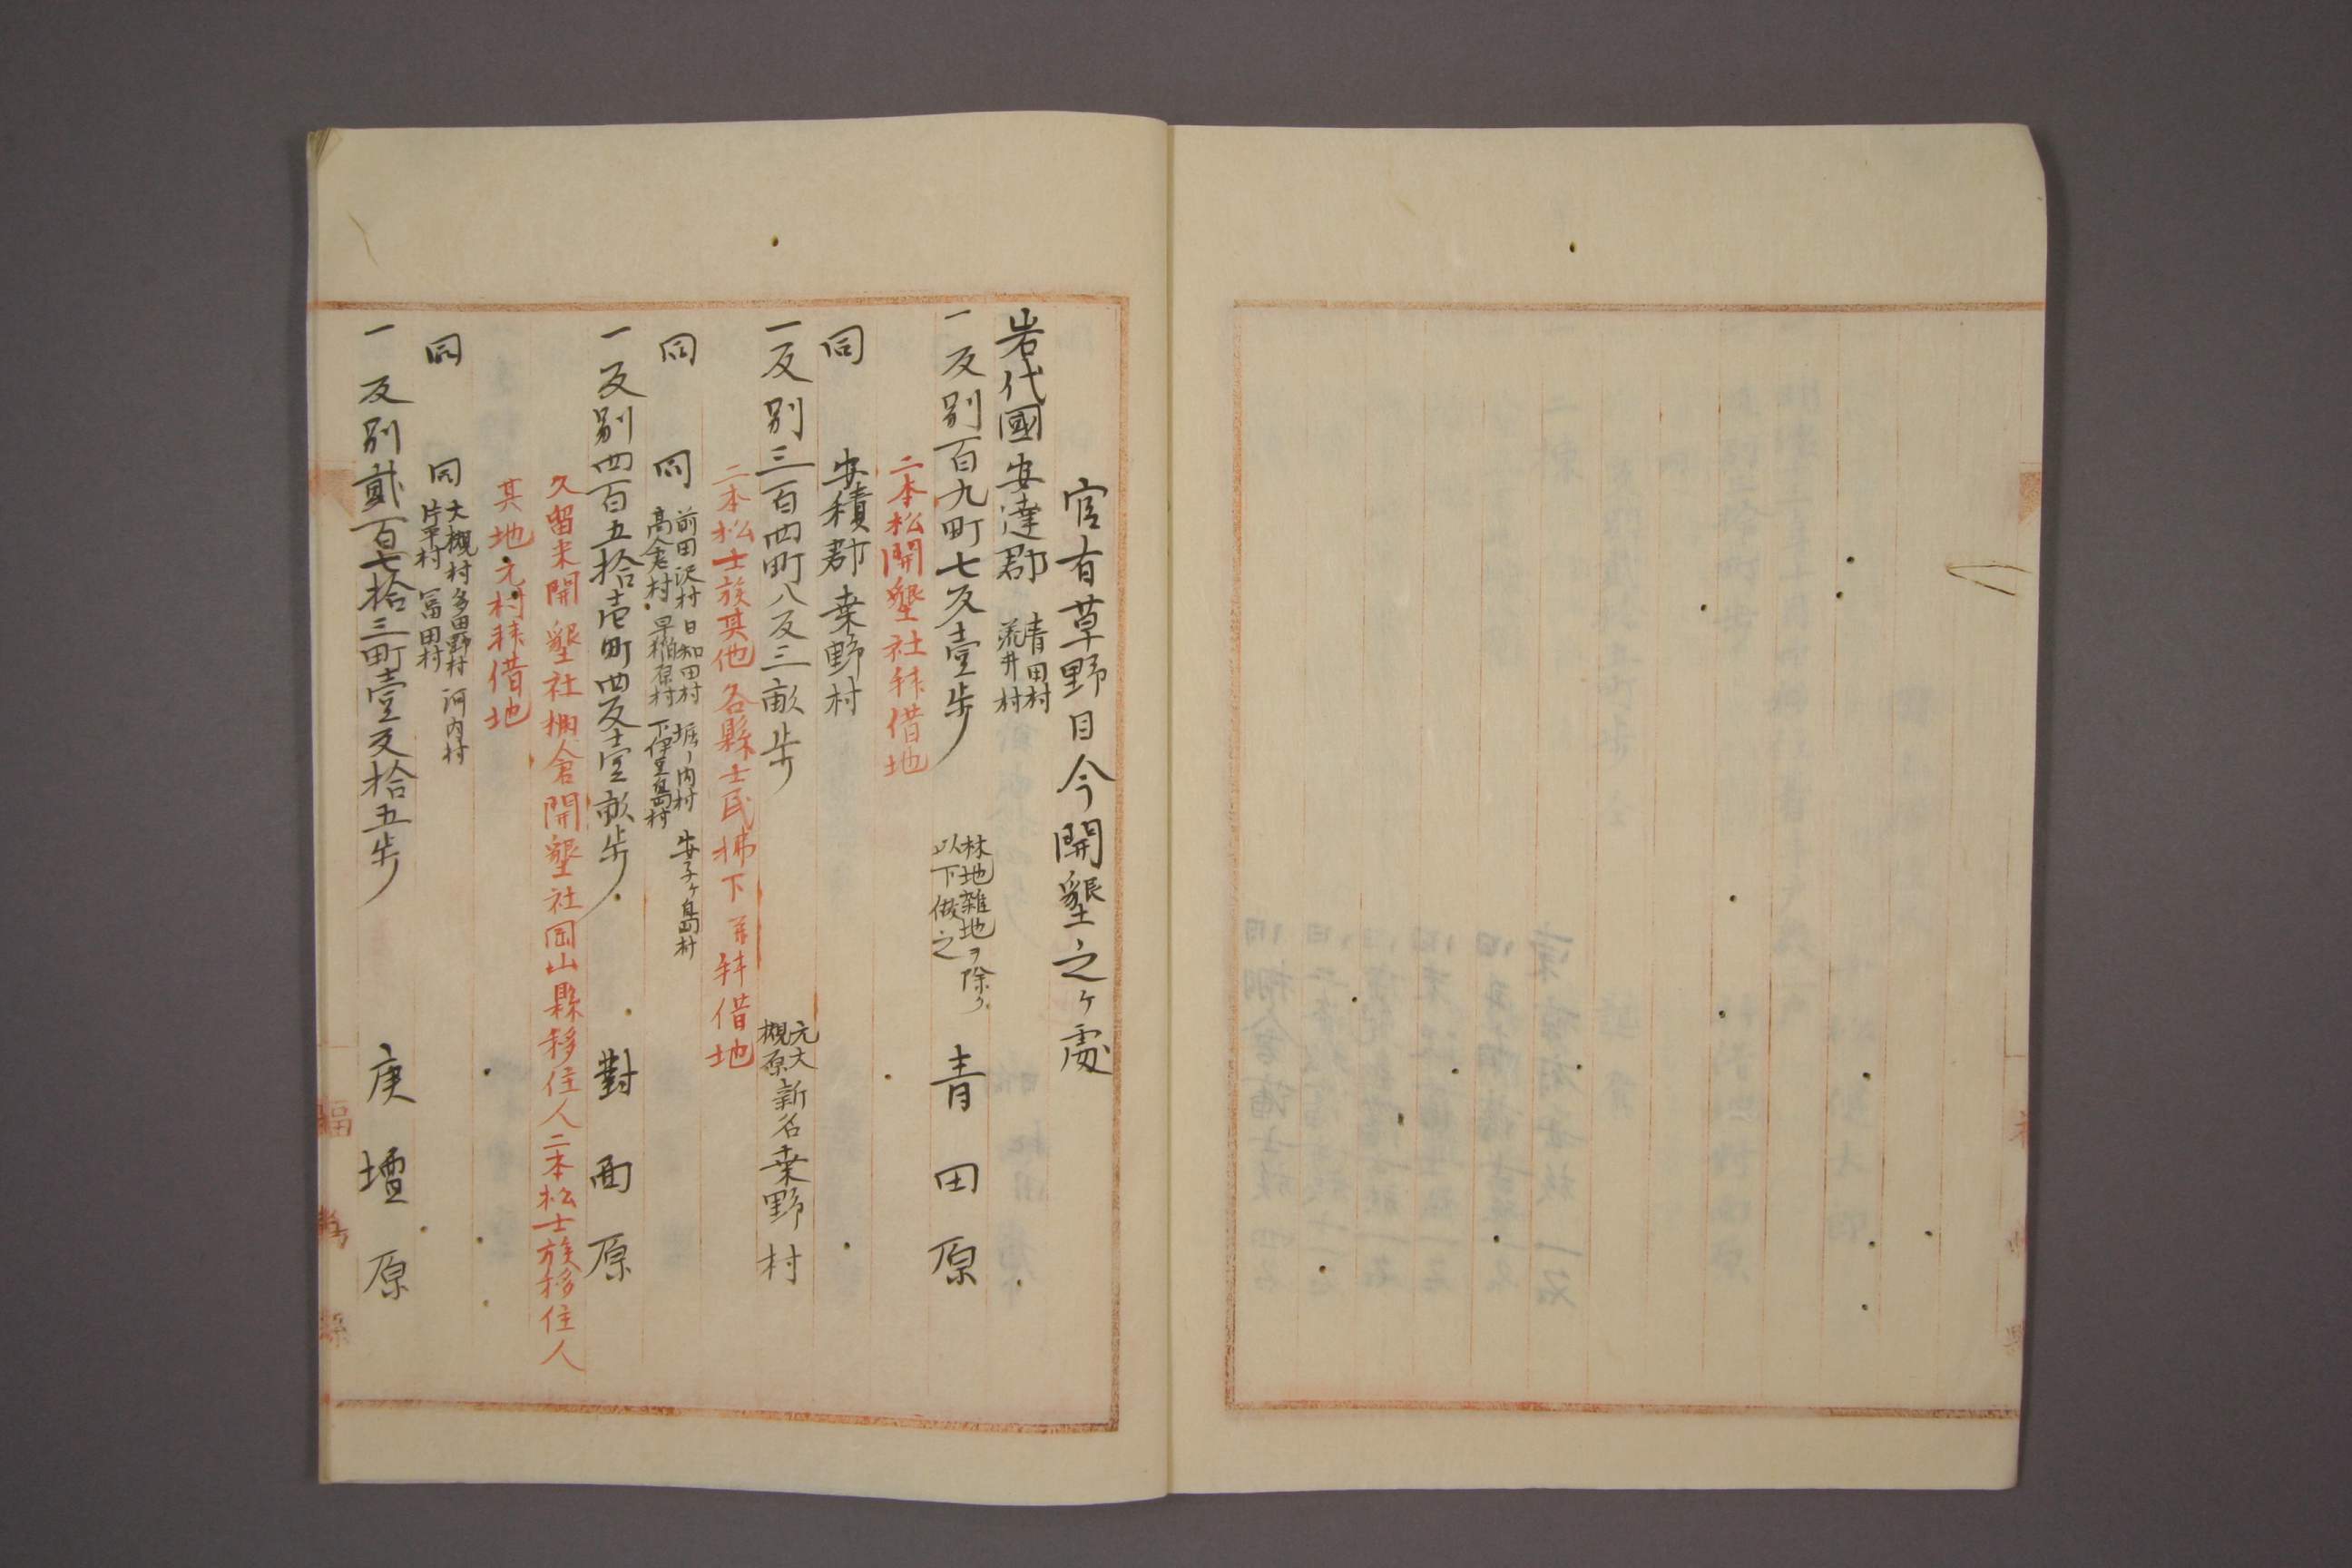 官有草野目今開墾之ヶ處
岩代國安達郡 青田村 荒井村
一反別百九町七反壹歩 林地雑地ヲ除ク 以下倣之 青田原
二本松開墾社拝借地
同 安積郡桒野村
一反別三百四町八反三畝歩 元大槻原 新名桒野村
二本松士族其他各縣士民拂下并拝借地
同 同 前田沢村 日和田村 堀ノ内村 安子ヶ島村
高倉村 早稲原村 下伊豆島村
一反別四百五拾壱町四反壹畝歩 對面原
久留米開墾社棚倉開墾社岡山縣移住人二本松士族移住人
其地元村拝借地
同 同 大槻村 多田野村 河内村
片平村 冨田村
一反別貳百七拾三町壹反拾五歩 庚壇原
福島縣